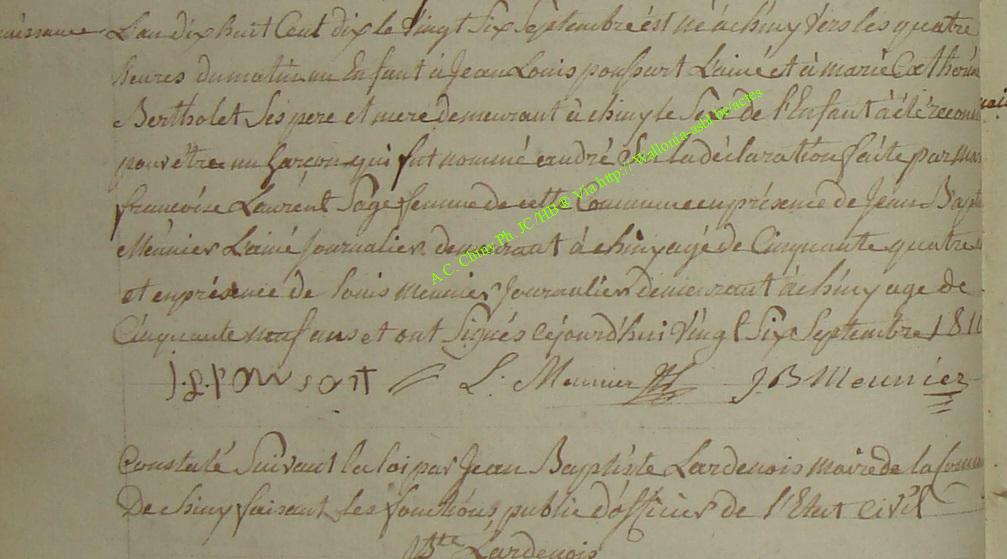 naissance L'an dix huit Cent dix le vingt Six Septembre est né à chiny vers les quatre
heures du matin un Enfant à Jean Louis ponssart L'ainé et à marie Catherin
Bertholet Ses pere et mere demeurant à chiny le Sexe de l'Enfant à été reconn
pour être un garçon qui fut nommé andré Sur la déclaration faite par mari
françoise Laurent Sage femme de cette Commune en présence de Jean Bapt
Meunier L'ainé Journalier demeurant à chiny agé de Cinquante quatre
et en présence de louis meunier Journalier demeurant à chiny age de
Cinquante neuf ans et ont Signés cejourd'hui vingt Six Septembre 1810
J. L. ponssart L. Meunier J B Meunier
Constaté Suivant la loi par Jean Baptiste Lardenois maire de la Comm
De chiny faisant les fonctions public d'officier de l'Etat Civil
Bte Lardenois
A.C. Chiny Ph. JC /HB @ Via http://Wallonia-asbl.be/actes